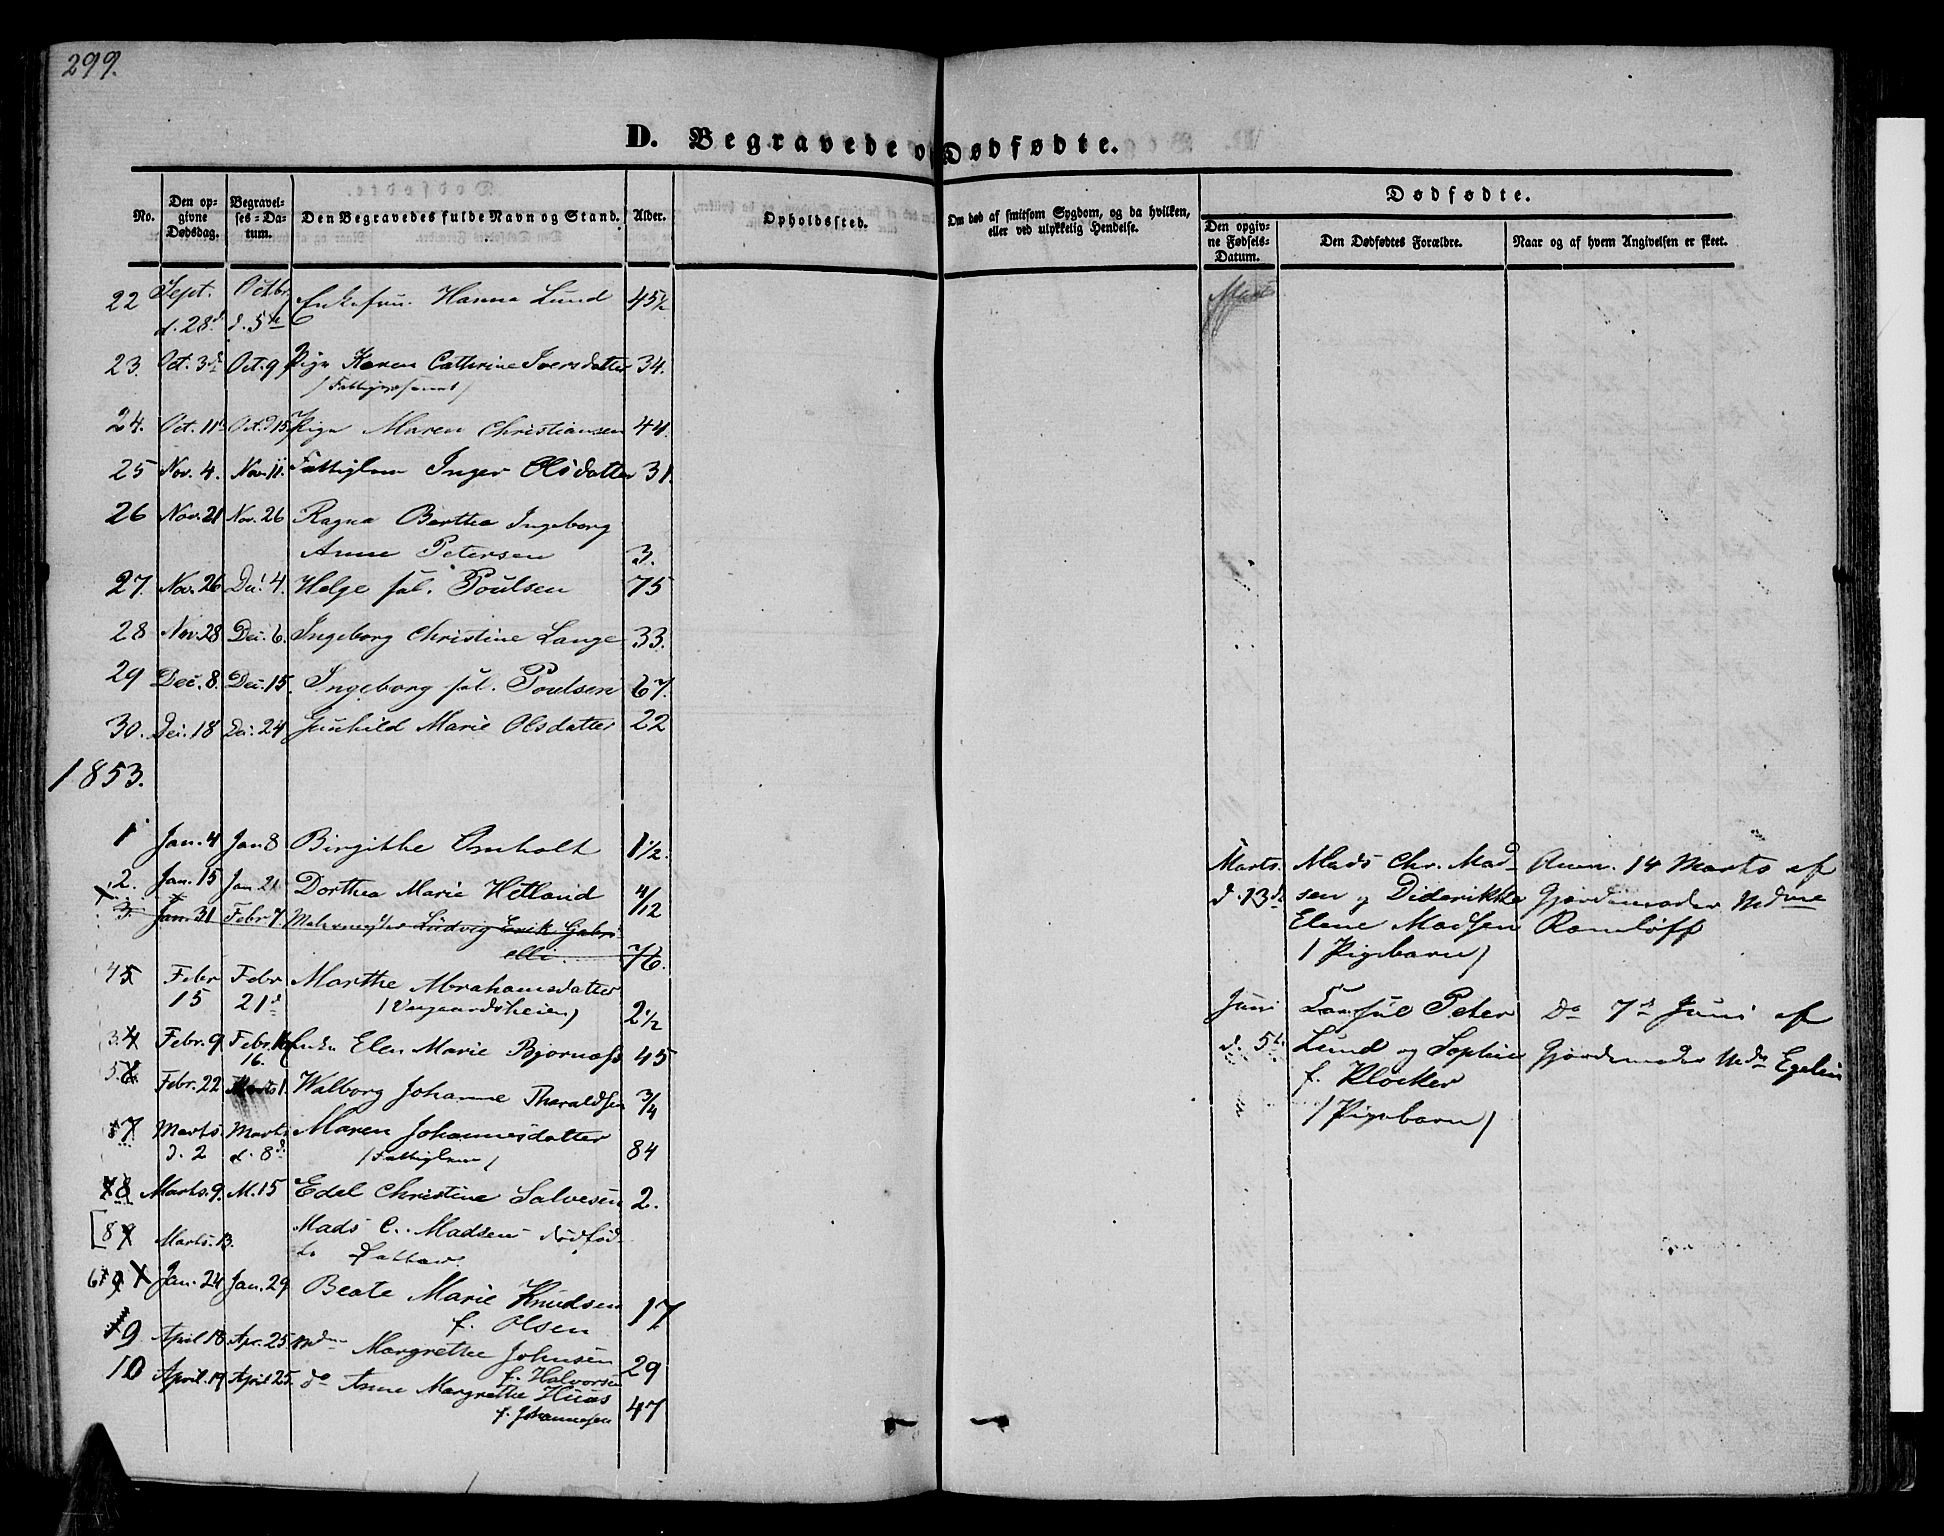 299.
D. Begravede o Dødfødte.
No.
Den opgivne Dødsdag.
Begravelses-Datum.
Den Begravedes fulde Navn og Stand.
Alder.
Opholdssted.
Om død af smitsom Sygdom, og da hvilken, eller ved ulykkelig Hendelse.
Dødfødte.
Den opgivne Fødsels-Datum.
Den Dødfødtes Forældre.
Naar og af hvem Angivelsen er skeet.
22 Sept. d. 28d Octbr. d. 5te Enkefru Hanna Lund 45½
23. Oct. 3d Oct. 9 Pige Karen Cathrine Iversdatter 34.
24. Oct. 11 Oct. 15 Pige Maren Christiansen 44.
25 Nov. 4. Nov. 11. Fattiglem Inger Olsdatter 31.
26 Nov. 21 Nov. 26 Ragna Barthe Ingeborg
Anne Petersen 3.
27. Nov. 26 Dec. 4. Helge sal. Poulsen 75
28 Nov. 28 Dec. 6. Ingeborg Christine Lange 33.
29 Dec. 8. Dec. 15. Ingeborg sal. Poulsen 67.
30. Dec. 18 Dec. 24 Gunhild Marie Olsdatter 22
1853.
1 Jan. 4 Jan 8 Birgithe Omholt 1½.
2. Jan. 15 Jan 21 Dorthea Marie Hetland 4/12
3. Jan. 31 Febr. 7 Ludvig Erik Gabri
elli 76.
4 5 Febr 15 Febr 21d Marthe Abrahamsdatter
/Vegaardsheien/ 2½
3. 4 Febr. 9 Febr. 16. Enke Elen Marie Bjornaas 45
5. 6 Febr. 22 Marts 1 Walborg Johanne Tharaldsen 3/4
7 Marts d. 2 Marts d. 8d Maren Johannesdatter
/Fattiglem/ 84
8 Marts. 9. M. 15 Edel Christine Salvesen 2.
[8 Marts. 13. Mads C. Madsen dødfød-
te
6 9 X Jan. 24 Jan. 29 Beate Marie Knudsen
f. Olsen 17
9 April 18 Apr. 25 Mdm Margrethe Johnsen
f. Halvorsen 29
10 April. 19 April 25. do Anne Margrethe Huas
f. Johannesen 47
Marts
Marts. d. 13de
Mads Chr. Mad-
sen og Diderikke
Elene Madsen
/Pigebarn/
Anm. 14 Marts af
Gjordemoder Mdme
Ramløff
Juni d. 5t
Peter
Lund og Sophie
f. Klocker
/Pigebarn/
Do 7d Juni af
Gjordemoder Mdm Egelie